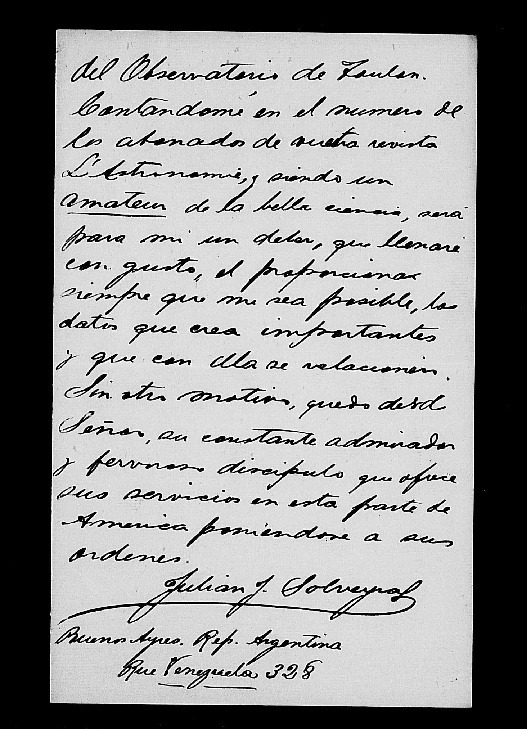 del Observatorio de Toulon.
Contandome en el numero de
los abonados de vuetra revista
L'Astronomie, y siendo un
amateur de la bella ciencia, será
para mi un deber, que llenaré
con gusto, el proporcionar
siempre que me sea posible, los
datos que crea importantes
y que con ella se relacionen.
Sin otro motivo, quedo de Vd
Señor, su constante admirador
y fervoroso discipulo que ofrece
sus servicios en esta parte de
America poniendose a sus
ordenes.
Julian J. Solveyra
Buenos Ayres. Rep. Argentina
Rue Venezuela 328